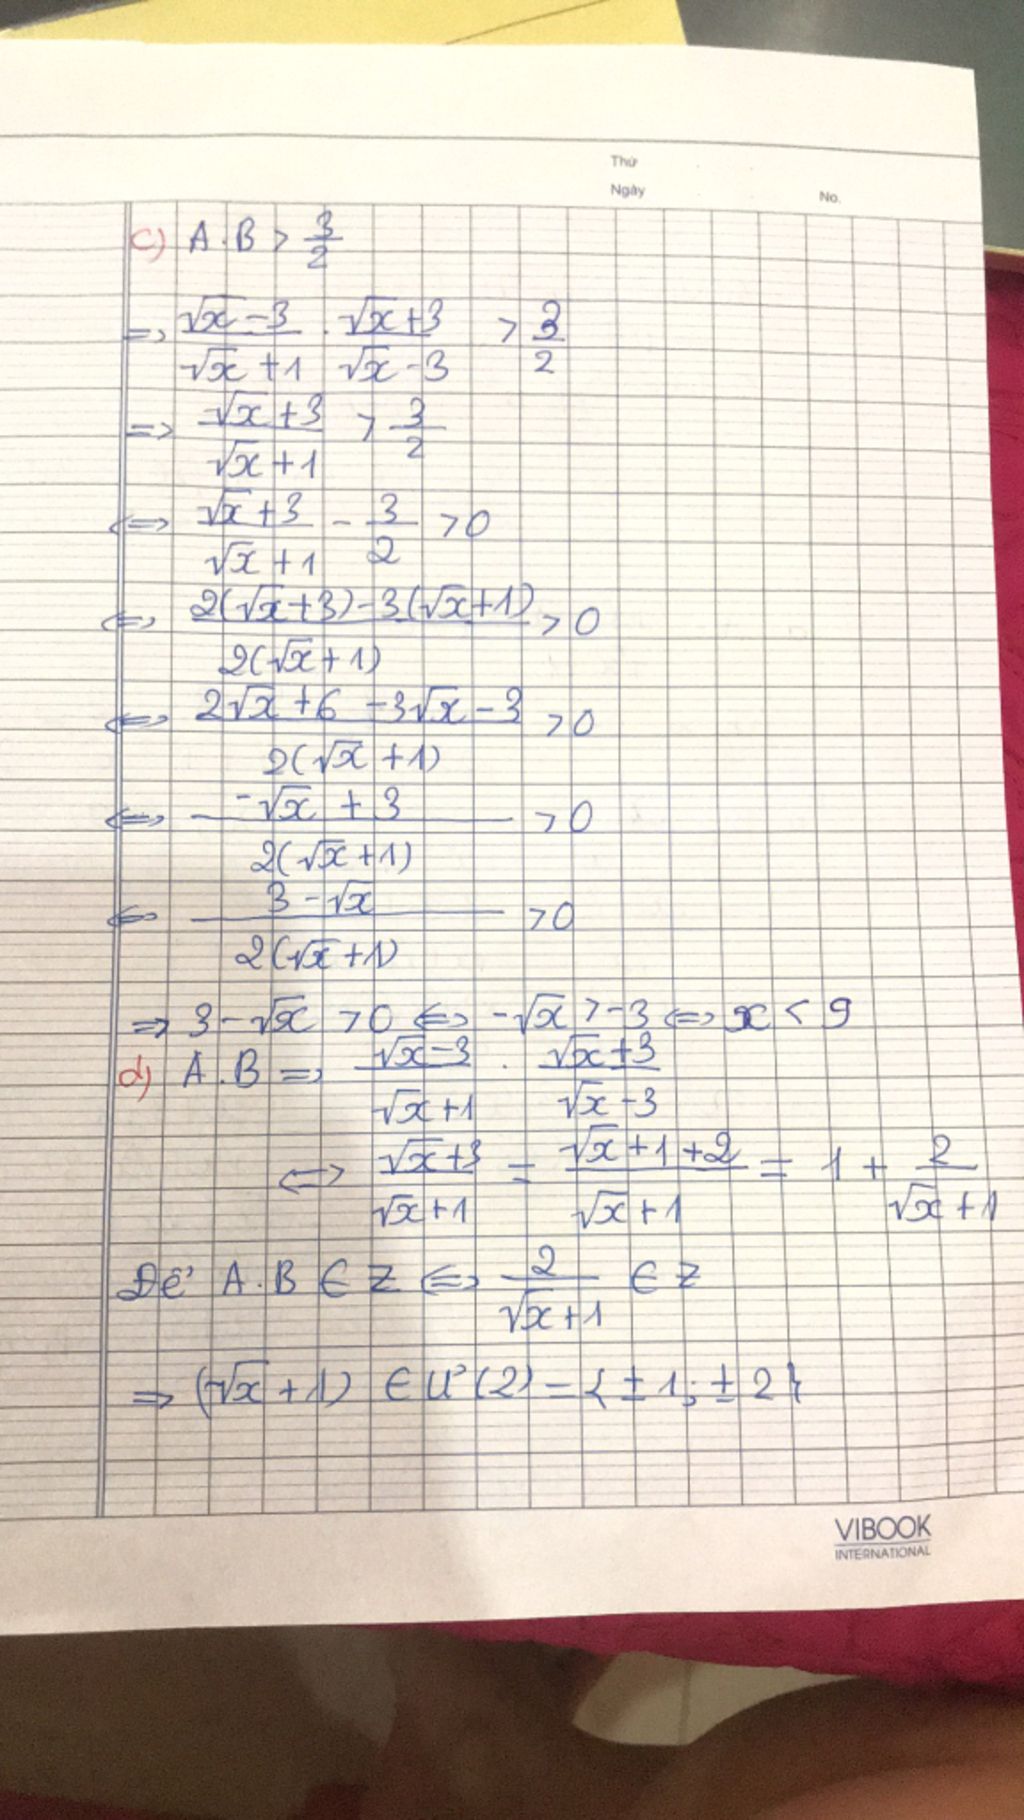 Thứ
Ngày
No.
c) A.B > 3/2
=> (√x-3)/(√x+1) . (√x+3)/(√x-3) > 3/2
=> (√x+3)/(√x+1) > 3/2
<=> (√x+3)/(√x+1) - 3/2 > 0
<=> (2(√x+3)-3(√x+1))/(2(√x+1)) > 0
<=> (2√x+6-3√x-3)/(2(√x+1)) > 0
<=> (-√x+3)/(2(√x+1)) > 0
<=> (3-√x)/(2(√x+1)) > 0
=> 3-√x > 0 <=> -√x > -3 <=> x < 9
d) A.B => (√x-3)/(√x+1) . (√x+3)/(√x-3)
<=> (√x+3)/(√x+1) = (√x+1+2)/(√x+1) = 1 + 2/(√x+1)
Để A.B ∈ Z <=> 2/(√x+1) ∈ Z
=> (√x+1) ∈ Ư(2) = {±1; ±2}
VIBOOK
INTERNATIONAL